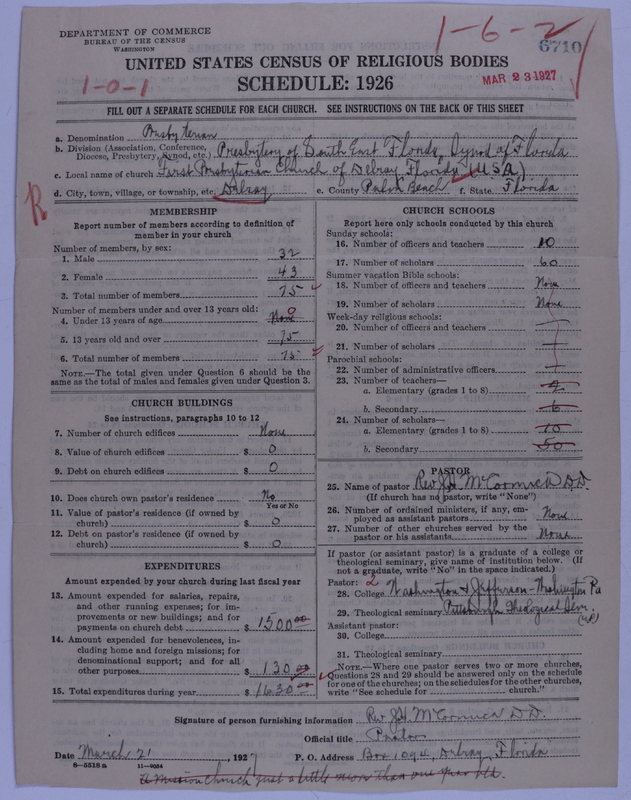 DEPARTMENT OF COMMERCE
BUREAU OF THE CENSUS
WASHINGTON
1-6-2
6710
1-0-1
UNITED STATES CENSUS OF RELIGIOUS BODIES
MAR 23 1927
SCHEDULE: 1926
FILL OUT A SEPARATE SCHEDULE FOR EACH CHURCH. SEE INSTRUCTIONS ON THE BACK OF THIS SHEET
a. Denomination Presbyterian
b. Division (Association, Conference, Diocese, Presbytery, Synod, etc.) Presbytery of South East Florida, Synod of Florida
c. Local name of church First Presbyterian Church of Delray, Florida (USA)
d. City, town, village, or township, etc. Delray e. County Palm Beach f. State Florida
R
MEMBERSHIP
Report number of members according to definition of
member in your church
Number of members, by sex:
1. Male 32
2. Female 43
3. Total number of members 75
Number of members under and over 13 years old:
4. Under 13 years of age None 0
5. 13 years old and over 75
6. Total number of members 75
NOTE.—The total given under Question 6 should be
same as the total of males and females given under Question 3.
CHURCH BUILDINGS
See instructions, paragraphs 10 to 12
7. Number of church edifices None
8. Value of church edifices $ 0
9. Debt on church edifices $ 0
10. Does church own pastor's residence No
Yes or No
11. Value of pastor's residence (if owned by
church) $ 0
12. Debt on pastor's residence (if owned by
church) $ 0
EXPENDITURES
Amount expended by your church during last fiscal year
13. Amount expended for salaries, repairs,
and other running expenses; for im-
provements or new buildings; and for
payments on church debt $ 1500 00
14. Amount expended for benevolences, in-
cluding home and foreign missions; for
denominational support; and for all
other purposes $ 130 00
15. Total expenditures during year $ 1630 00
CHURCH SCHOOLS
Report here only schools conducted by this church
Sunday schools:
16. Number of officers and teachers 10
17. Number of scholars 60
Summer vacation Bible schools:
18. Number of officers and teachers None
19. Number of scholars None
Week-day religious schools:
20. Number of officers and teachers
21. Number of scholars
Parochial schools:
22. Number of administrative officers
23. Number of teachers—
a. Elementary (grades 1 to 8) 2
b. Secondary 6
24. Number of scholars—
a. Elementary (grades 1 to 8) 10
b. Secondary 50
PASTOR
25. Name of pastor Rev J.H. McCormick D.D.
(If church has no pastor, write "None")
26. Number of ordained ministers, if any, em-
ployed as assistant pastors None
27. Number of other churches served by the
pastor or his assistants None
If pastor (or assistant pastor) is a graduate of a college or
theological seminary, give name of institution below. (If
not a graduate, write "No" in the space indicated.)
Pastor: 2
28. College Washington & Jefferson - Washington Pa
29. Theological seminary Pittsburgh Theological Sem.
Assistant pastor:
30. College
31. Theological seminary
NOTE.—Where one pastor serves two or more churches,
Questions 28 and 29 should be answered only on the schedule
for one of the churches; on the schedules for the other churches,
write "See schedule for church."
Signature of person furnishing information Rev J.H. McCormick D.D.
Official title Pastor
Date March 21, 1927 P. O. Address Box 1094, Delray, Florida
8-5518a 11-9084
A mission church just a little more than one year old.